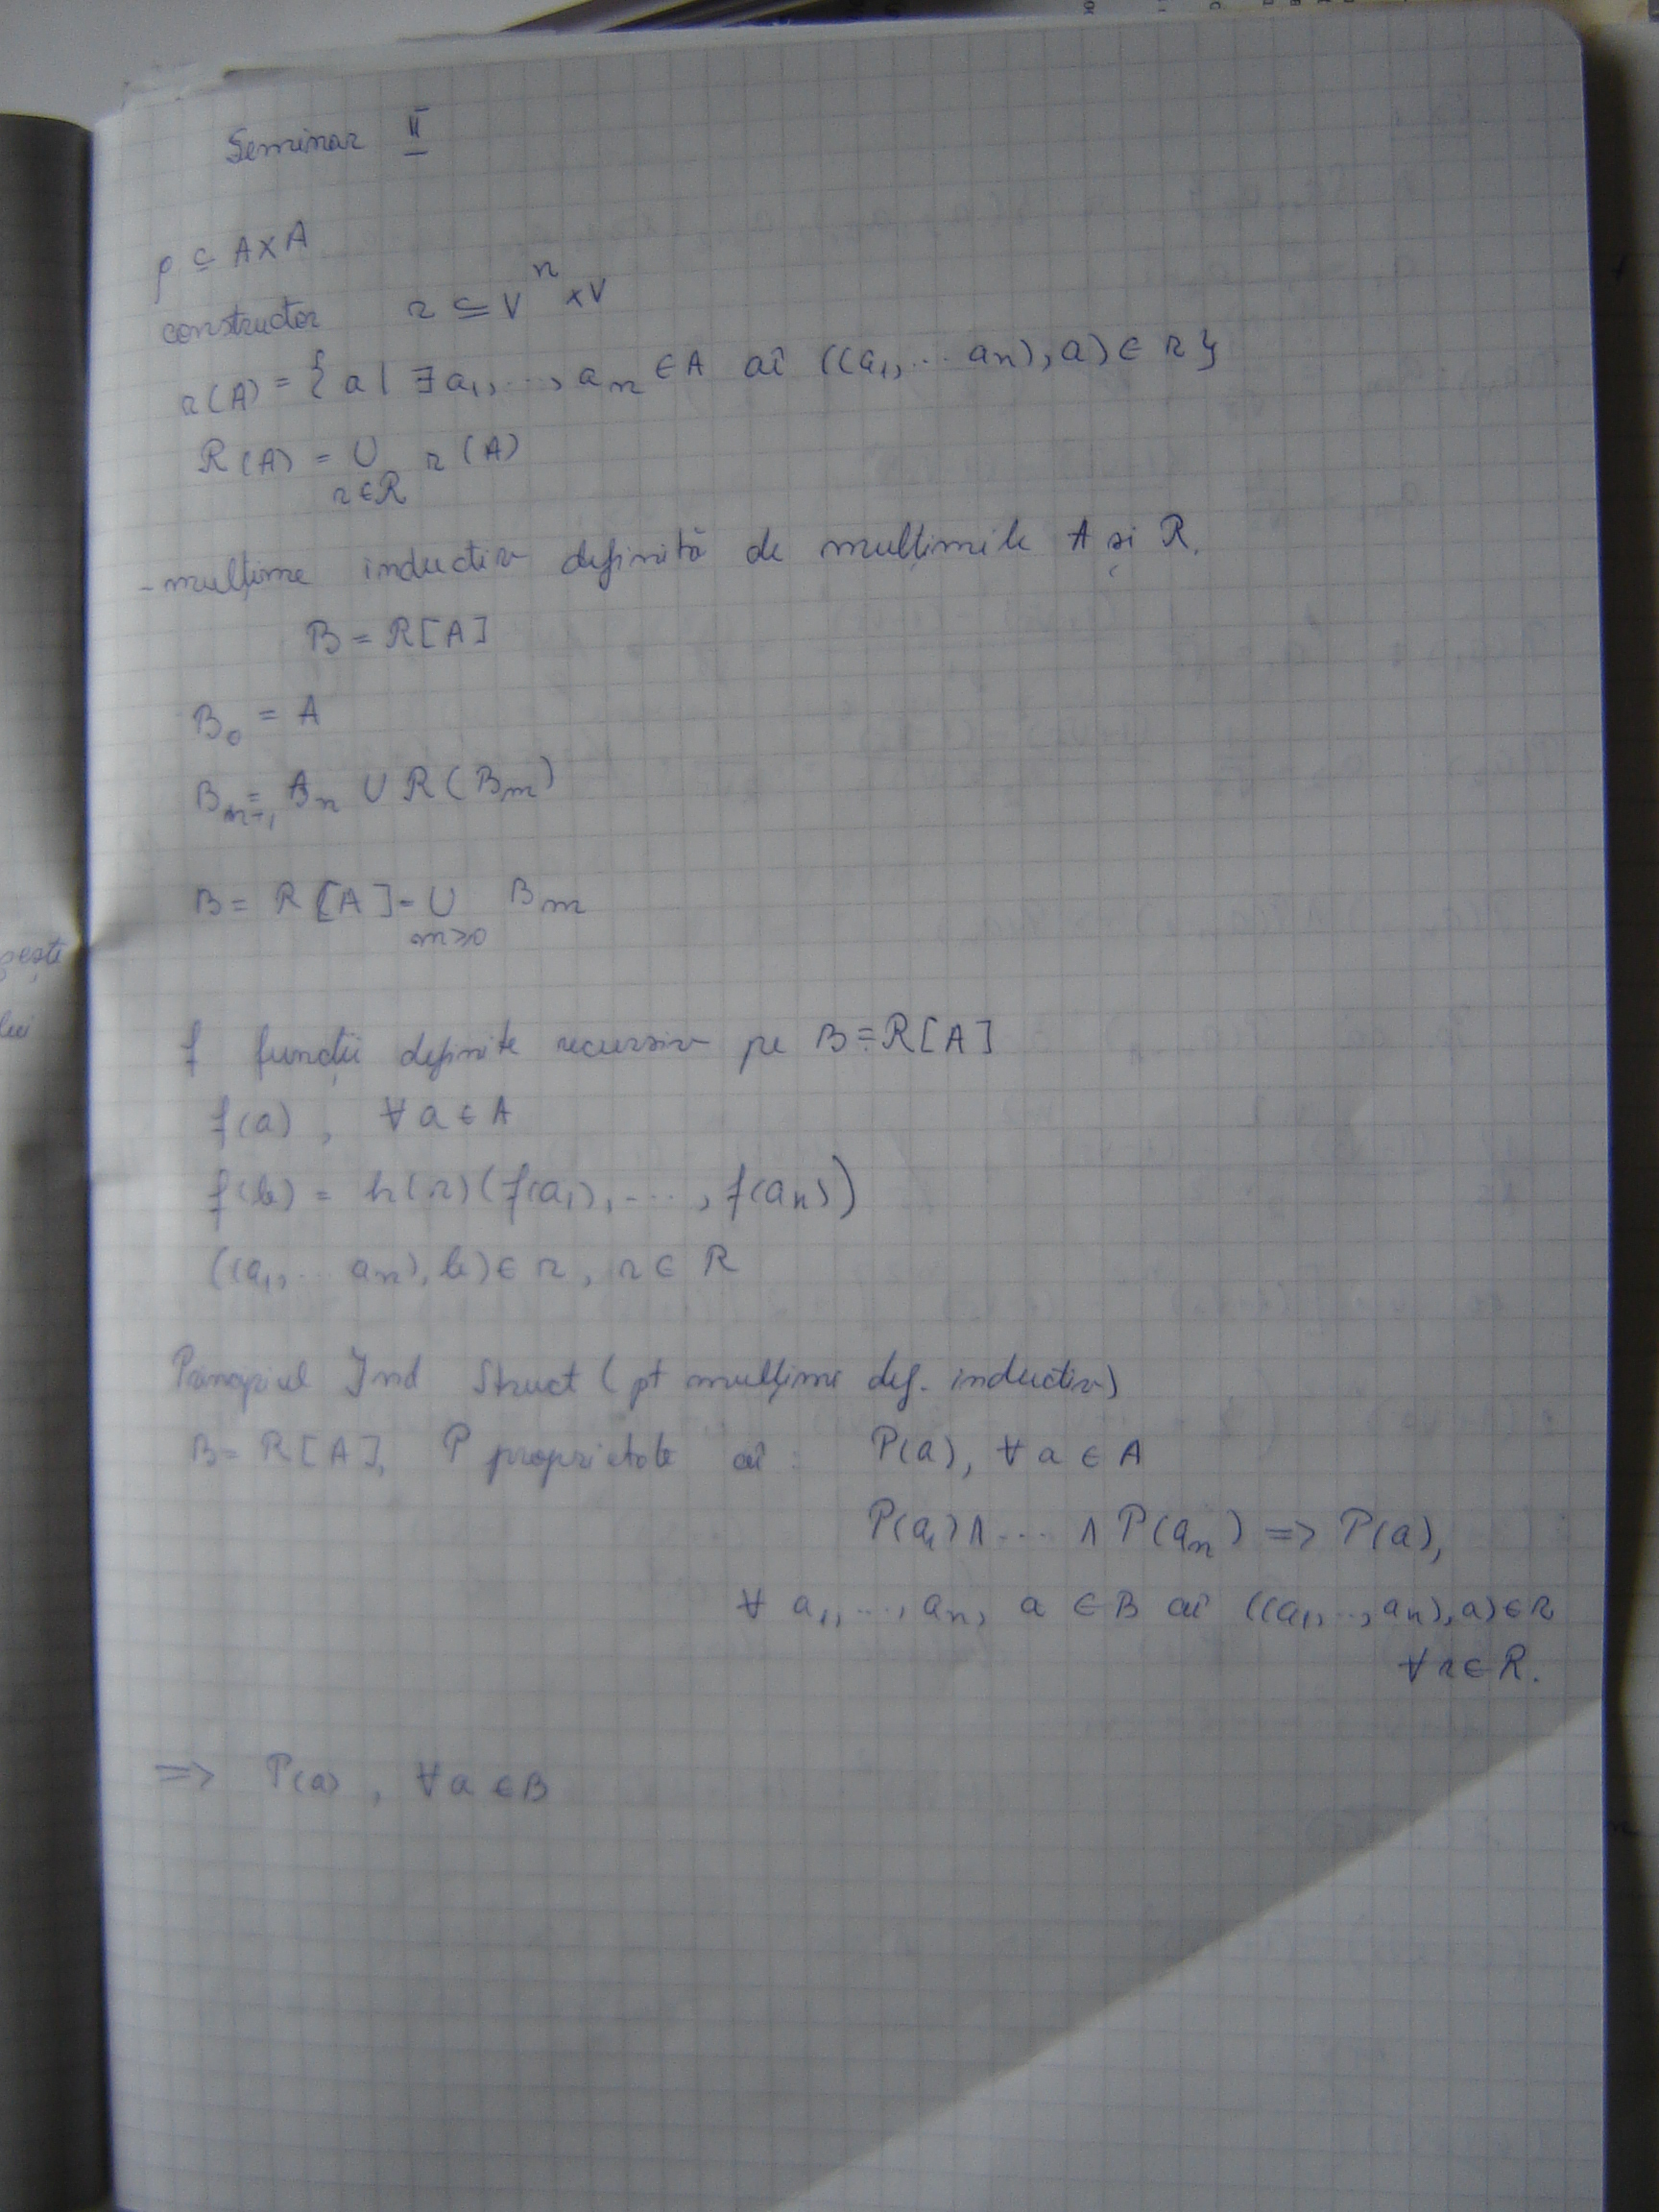 Seminar II
ρ ⊆ A×A
constructor r ⊆ Vⁿ×V
r(A) = { a | ∃ a₁, ..., aₙ ∈ A aî ((a₁, ... aₙ), a) ∈ r }
R(A) = ∪ r(A)
r∈R
- mulțime inductiv definită de mulțimile A și R.
B = R[A]
B₀ = A
Bₘ₊₁ = Bₘ ∪ R(Bₘ)
B = R[A] = ∪ Bₘ
m≥0
f funcții definite recursiv pe B = R[A]
f(a), ∀ a ∈ A
f(b) = h(r)(f(a₁), ..., f(aₙ))
((a₁, ... aₙ), b) ∈ r, r ∈ R
Principiul Ind Struct (pt mulțimi def. inductiv)
B = R[A], P proprietate aî: P(a), ∀ a ∈ A
P(a₁) ∧ ... ∧ P(aₙ) => P(a),
∀ a₁, ..., aₙ, a ∈ B aî ((a₁, .., aₙ), a) ∈ r
∀ r ∈ R.
=> P(a), ∀ a ∈ B
lui